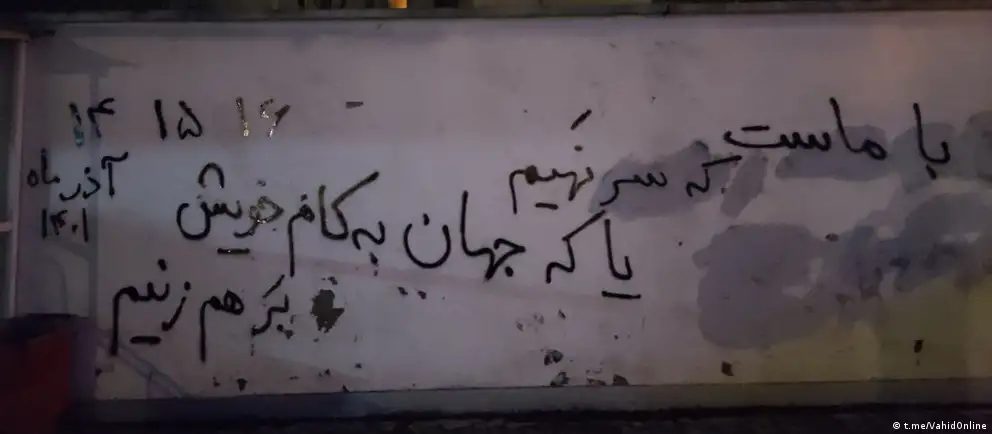 با ماست که سر نهیم
یا که جهان به کام خویش
بر هم زنیم
۱۴ ۱۵ ۱۶
آذر ماه
۱۴۰۱
t.me/VahidOnline